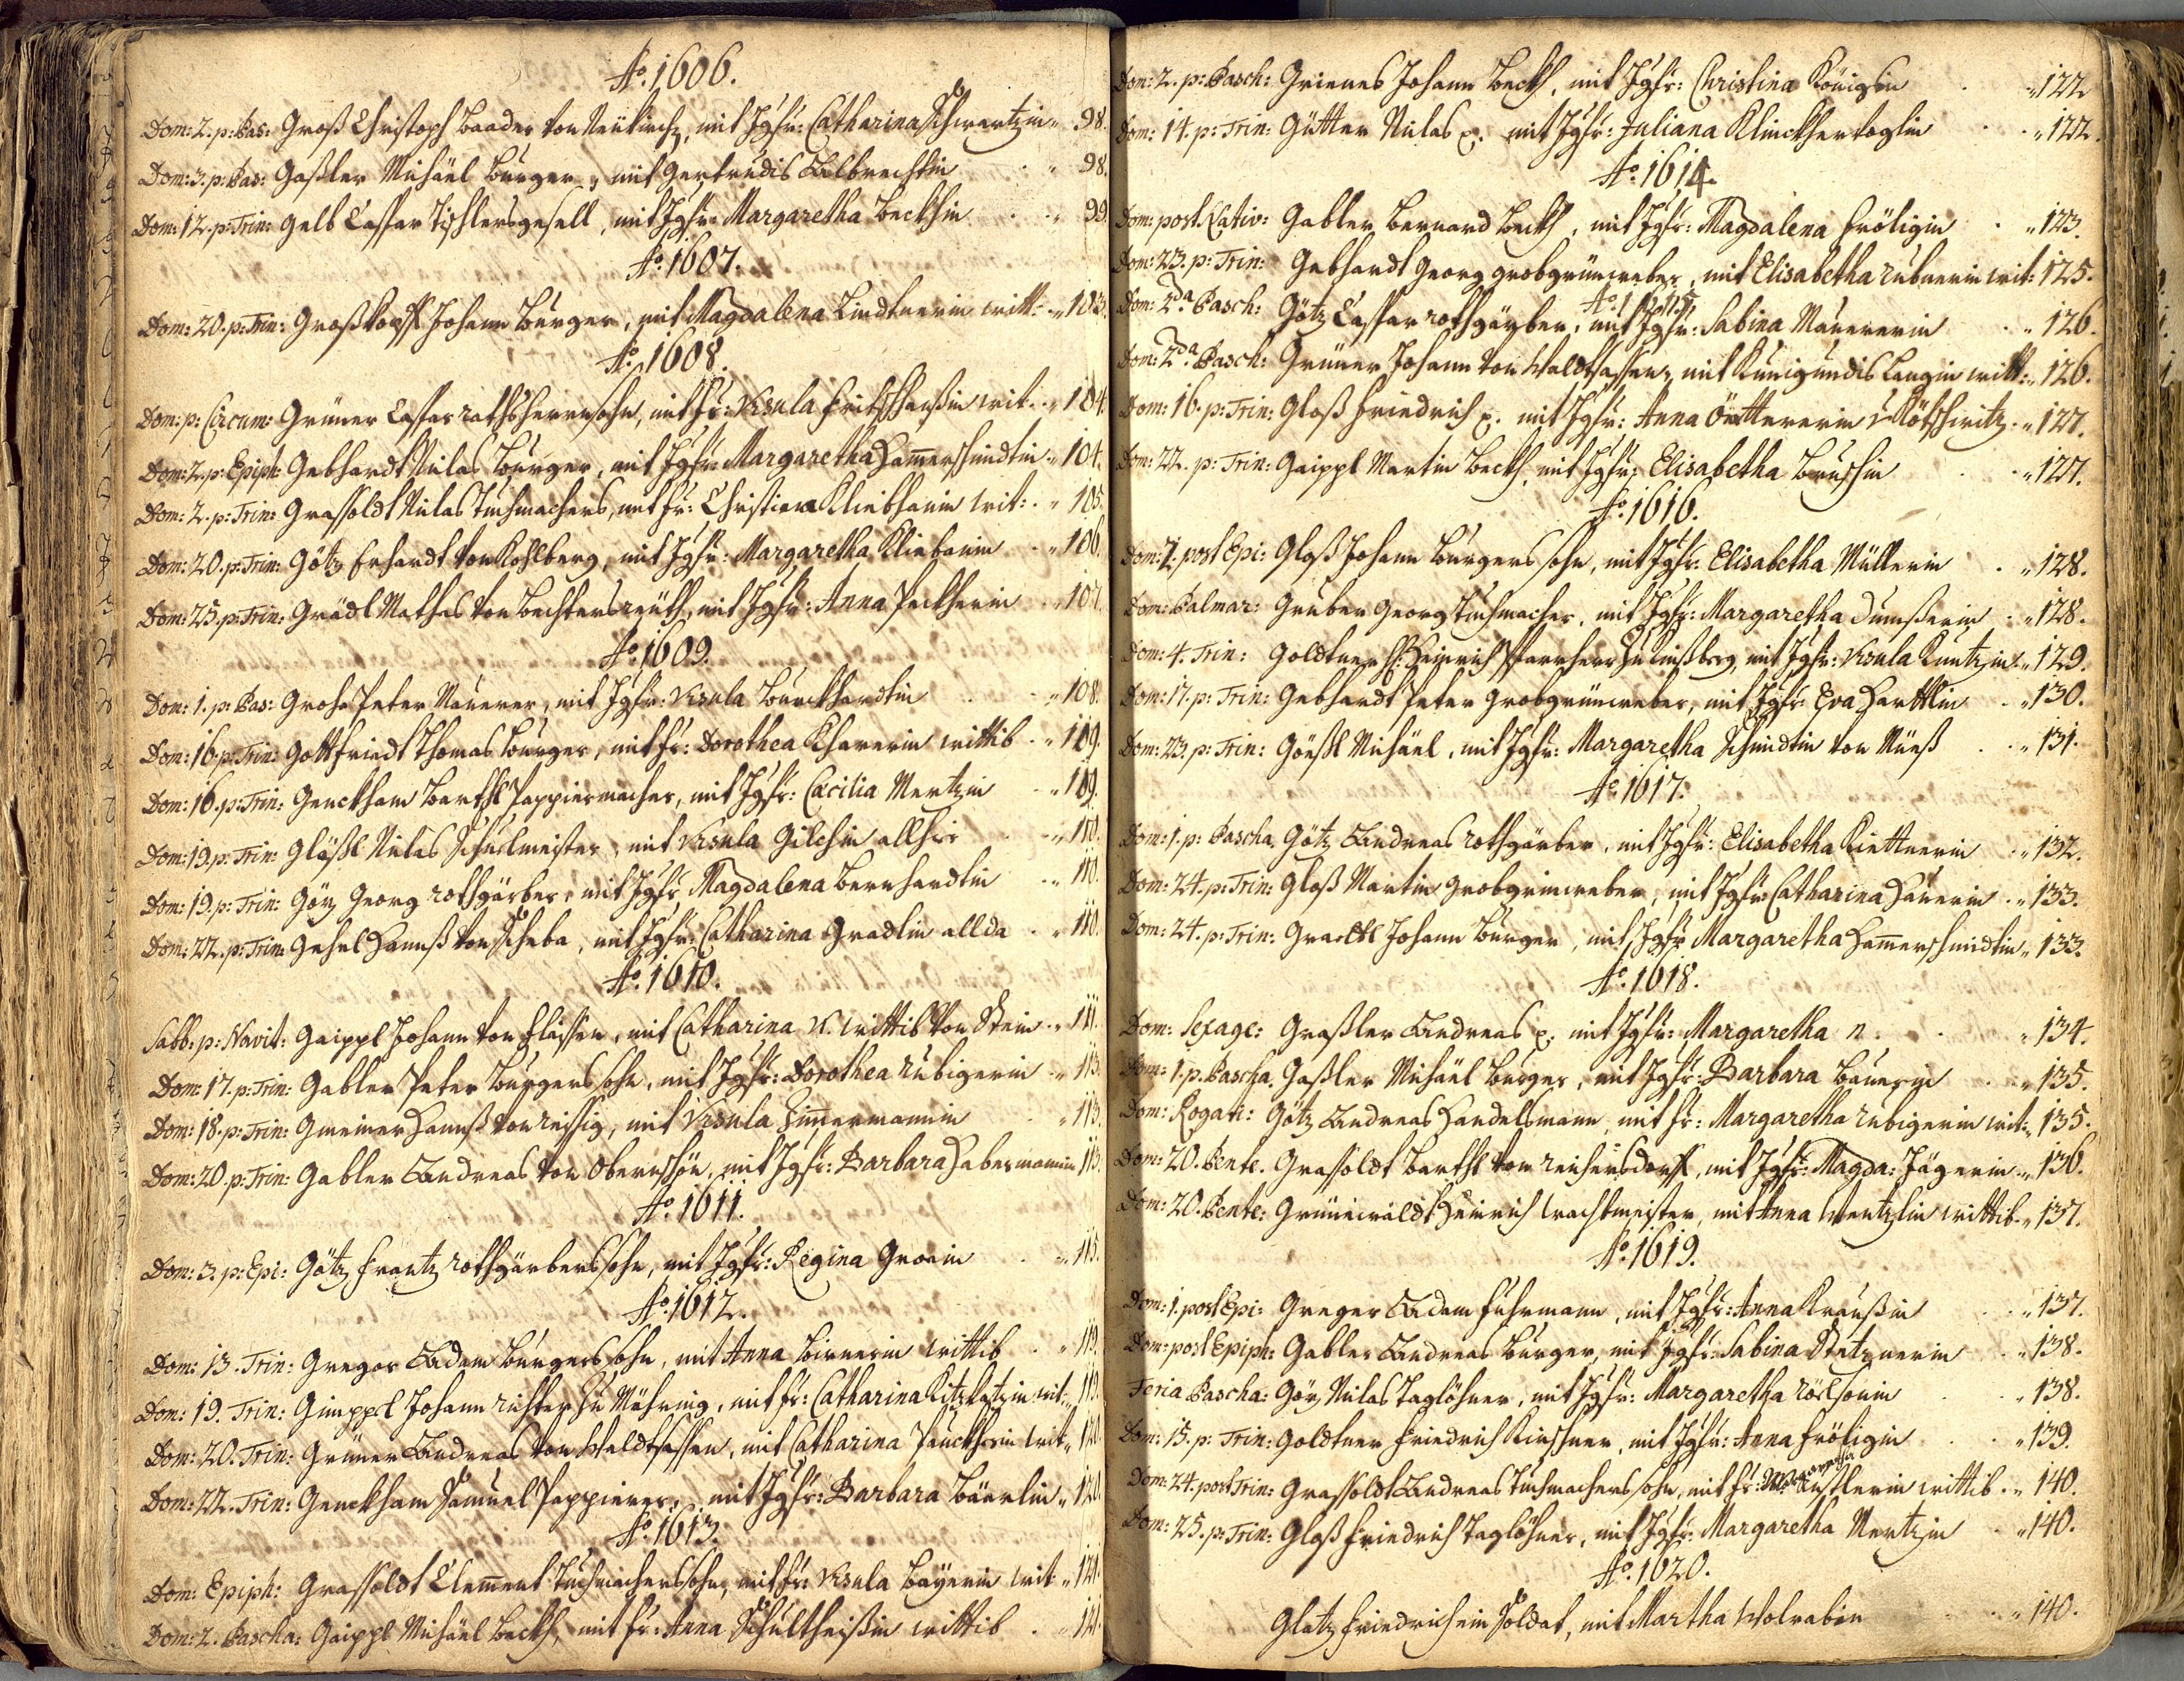 Ao. 1606.
Dom: 2. p: Pas: Groß Christoph Baader von Neükirch, mit Jgfr: Catharina Schwartzin „ 98.
Dom: 3. p: Pas: Gaßler Michäel Burger, mit Gertrudis Albrechtin „ 98.
Dom: 12. p: Trin: Gelb Caspar Tischlersgesell, mit Jgfr: Margaretha Beckhin „ 99.
Ao. 1607.
Dom: 20. p: Trin: Großkopff Johann Burger, mit Magdalena Lindtnerin witt: „ 103.
Ao. 1608.
Dom: p: Circum: Grüner Caspar rathsherrnsohn, mit fr: Ursula Fritschhanßin wit: „ 104.
Dom: 2. p: Epiph: Gebhardt Niclas Burger, mit Jgfr: Margaretha Ham̄erschmidtin „ 104.
Dom: 2. p: Trin: Grassoldt Niclas Tuchmachers, mit fr: Christina Kliebhanin wit: „ 105.
Dom: 20. p: Trin: Götz Erhardt von Kohlberg, mit Jgfr: Margaretha Kliebanin „ 106.
Dom: 25. p: Trin: Grädl Mathes von Bechtersreüth, mit Jgfr: Anna Peckherin „ 107.
Ao. 1609.
Dom: 1. p: Pas: Groha Peter Maurer, mit Jgfr: Ursula Burckhardtin „ 108.
Dom: 16. p: Trin: Gottfriedt Thomas Burger, mit fr: Dorothea Khererin wittib „ 109.
Dom: 16. p: Trin: Genckham Barthl Pappiermacher, mit Jgfr: Cæcilia Mertzin „ 109.
Dom: 19. p: Trin: Gläßl Niclas Schuelmeister, mit Ursula Gilchin allhier „ 110.
Dom: 19. p: Trin: Görz Georg rothgärber, mit Jgfr: Magdalena Bernhardtin „ 110.
Dom: 22. p: Trin: Gehel Hannß von Scheba, mit Jgfr: Catharina Gradlin allda „ 110.
Ao. 1610.
Sabb: p: Navit: Gaippl Johann von Flaissen, mit Catharina N. wittib von Stein „ 111.
Dom: 17. p: Trin: Gabler Peter Burgerssohn, mit Jgfr: Dorothea Rubigerin „ 113.
Dom: 18. p: Trin: Gmeiner Hannß von reissig, mit Ursula Zim̄ermannin „ 113.
Dom: 20. p: Trin: Gabler Andreas von Obernschön, mit Jgfr: Barbara Habermannin 113.
Ao. 1611.
Dom: 3. p: Epi: Götz Frantz rothgärberssohn, mit Jgfr: Regina Groein „ 115.
Ao. 1612.
Dom: 13. Trin: Greger Adam Burgerssohn, mit Anna Birnerin wittib „ 119.
Dom: 19. Trin: Gimppel Johann richter zu Mähring, mit fr: Catharina Kitzkatzin wit: „ 119.
Dom: 20. Trin: Grüner Andreas von Waldtsassen, mit Catharina Pauckherin wit: „ 120.
Dom: 22. Trin: Genckham Samuel Pappierer, mit Jgfr: Barbara Bäerlin „ 120.
Ao. 1613.
Dom: Epiph: Grassoldt Clem̄ent Tuchmacherssohn, mit fr: Ursula Bayerin wit: „ 121.
Dom: 2. Pascha: Gaippl Michäel Beckh, mit fr: Anna Schultheißin wittib „ 121.
Dom: 2. p: Pasch: Grienes Johann Beckh, mit Jgfr: Christina Königin „ 122
Dom: 14. p: Trin: Gütter Niclas p. mit Jgfr: Juliana Klinckherkoglin „ 122.
Ao. 1614.
Dom: post Nativ: Gabler Bernard Beckh, mit Jgfr: Magdalena Frölichin „ 123.
Dom: 23. p: Trin: Gebhardt Georg grobgrünweber, mit Elisabetha Rubnerin wit: 125.
Ao. 1615
Dom: 2da Pasch: Götz Caspar rothgärber, mit Jgfr: Sabina Maurerin „ 126.
Dom: 2da Pasch: Grüner Johann von Waldtsassen, mit Kunigundis Langin witt: „ 126.
Dom: 16. p: Trin: Glaß Friedrich p. mit Jgfr: Anna Öttererin v. Rötschwitz „ 127.
Dom: 22. p: Trin: Gaippl Martin Beckh, mit Jgfr: Elisabetha Bruschin „ 127.
Ao. 1616.
Dom: 1. post Epi: Glaß Johann Burgerssohn, mit Jgfr: Elisabetha Müllerin „ 128.
Dom: Palmar: Gruber Georg Tuchmacher, mit Jgfr: Margaretha Dumßerin „ 128.
Dom: 4. Trin: Goldtner H: Heinrich Pfarrherr zu Linßberg, mit Jgfr: Ursula Kuntzin „ 129.
Dom: 17. p: Trin: Gebhardt Peter Grobgrünweber, mit Jgfr: Eva Harttlin „ 130.
Dom: 23. p: Trin: Gößl Michäel, mit Jgfr: Margaretha Schmidtin von Müeß „ 131.
Ao. 1617.
Dom: 1. p: Pascha, Götz Andreas rothgärber, mit Jgfr: Elisabetha Kiettnerin „ 132.
Dom: 24. p: Trin: Glaß Martin Grobgrinweber, mit Jgfr: Catharina Hauerin „ 133.
Dom: 24. p: Trin: Graedl Johann Burger, mit Jgfr: Margaretha Ham̄erschmidtin „ 133.
Ao. 1618.
Dom: Sexage: Graßler Andreas p. mit Jgfr: Margaretha n. „ 134.
Dom: 1. p. Pascha. Gaßler Michäel Burger, mit Jgfr: Barbara Bauerin „ 135.
Dom: Rogati: Götz Andreas Handelsmann, mit fr: Margaretha Rubigerin wit: „ 135.
Dom: 20. Pente. Grassoldt Barthl von reichersdorff, mit Jgfr: Magda: Jägerin „ 136.
Dom: 20. Pente: Grünewaldt Heinrich wachtmeister, mit Anna Wentzlin wittib „ 137.
Ao. 1619.
Dom: 1. post Epi: Greger Adam fuhrmann, mit Jgfr: Anna Kraußin „ 137.
Dom: post Epiph: Gabler Andreas Burger, mit Jgfr: Sabina Statznerin „ 138.
Feria Pascha: Görz Niclas Taglöhner, mit Jgfr: Margaretha „ 138.
Dom: 15. p: Trin: Goldtner Friedrich Kirschner, mit Jgfr: Anna Frölichin „ 139.
Dom: 24. post Trin: Grassoldt Andreas Tuchmacherssohn, mit fr: Margaretha wittib „ 140.
Dom: 25. p: Trin: Glaß Friedrich Taglöhner, mit Jgfr: Margaretha Mertzin „ 140.
Ao. 1620.
Glatz Friedrich ein Soldat, mit Martha Wolrabin „ 140.